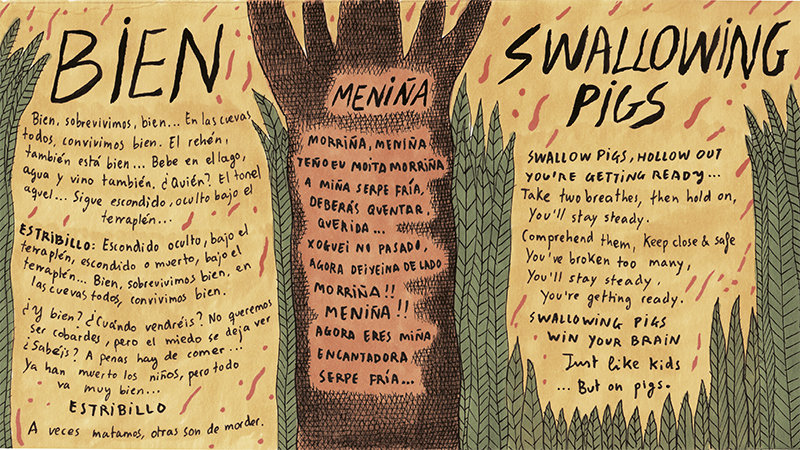 BIEN
Bien, sobrevivimos, bien... En las cuevas
todos, convivimos bien. El rehén,
también está bien... Bebe en el lago,
agua y vino también. ¿Quién? El tonel
aquel... Sigue escondido, oculto bajo el
terraplén...
ESTRIBILLO: Escondido oculto, bajo el
terraplén, escondido o muerto, bajo el
terraplén... Bien, sobrevivimos bien, en
las cuevas todos, convivimos bien.
¿Y bien? ¿Cuándo vendréis? No queremos
ser cobardes, pero el miedo se deja ver
¿Sabéis? A penas hay de comer...
Ya han muerto los niños, pero todo
va muy bien...
ESTRIBILLO
A veces matamos, otras son de morder.
MENIÑA
MORRIÑA, MENIÑA
TEÑO EU MOITA MORRIÑA
A MIÑA SERPE FRÍA,
DEBERÁS QUENTAR,
QUERIDA...
XOGUEI NO PASADO,
AGORA DEIXEINA DE LADO
MORRIÑA!!
MENIÑA!!
AGORA ERES MIÑA
ENCANTADORA
SERPE FRÍA...
SWALLOWING
PIGS
SWALLOW PIGS, HOLLOW OUT
YOU'RE GETTING READY...
Take two breathes, then hold on,
You'll stay steady.
Comprehend them, Keep close & safe
You've broken too many,
You'll stay steady,
You're getting ready.
SWALLOWING PIGS
WIN YOUR BRAIN
Just like kids
... But on pigs.